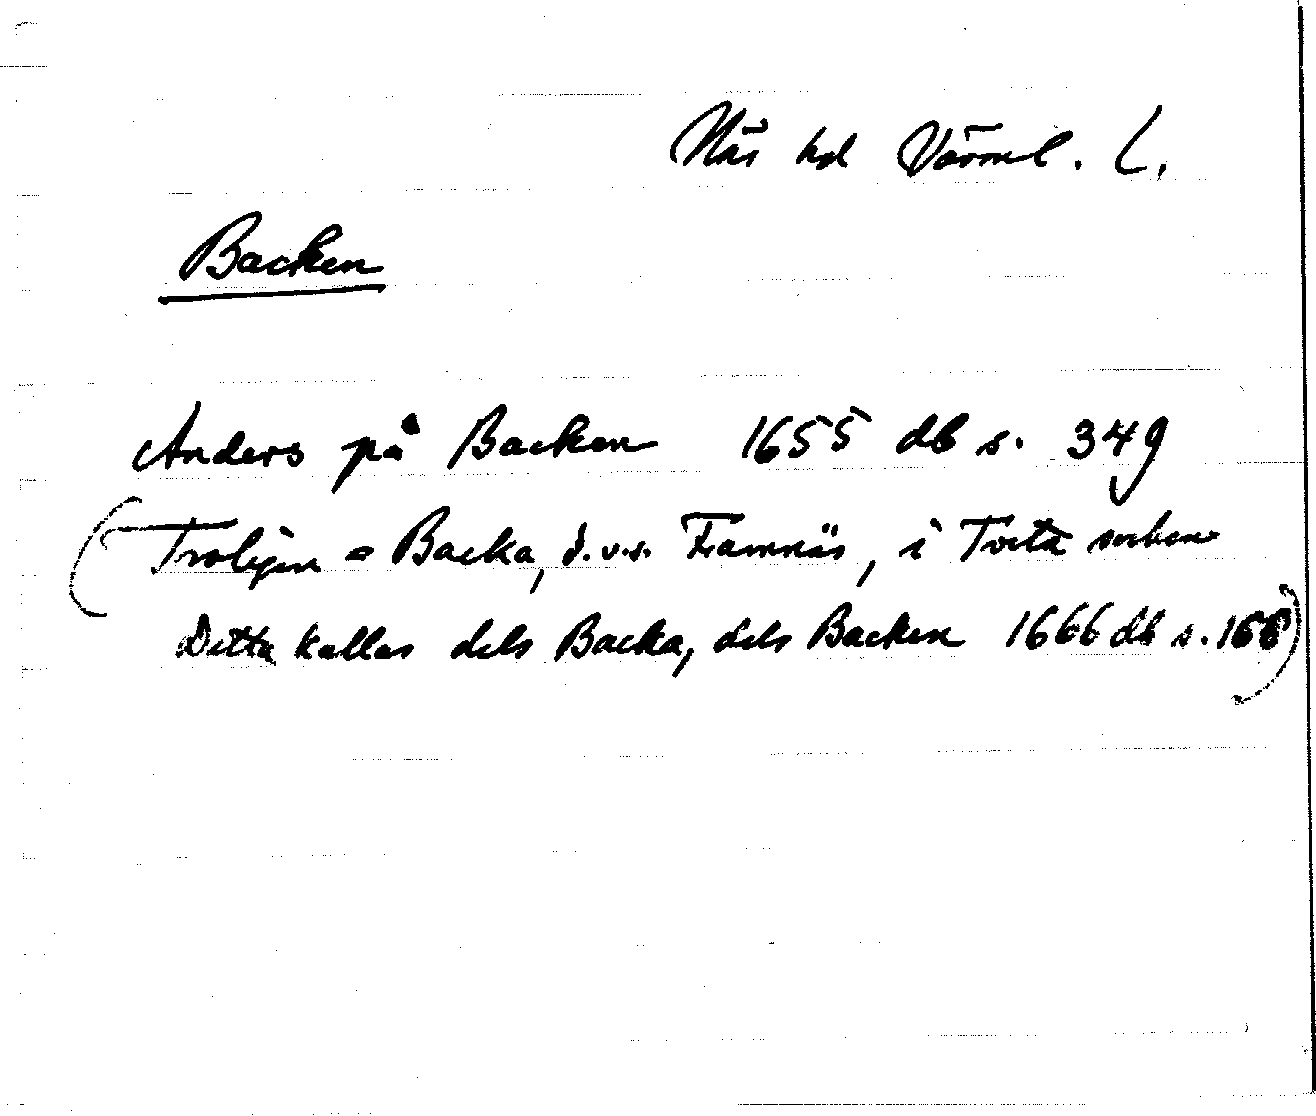 Näs hd Värml. L.
Backen
Anders på Backen 1655 db s. 349
(Troligen = Backa, d.v.s. Framnäs, i Tveta socken
Detta kallas dels Backa, dels Backen 1666 db s. 166)